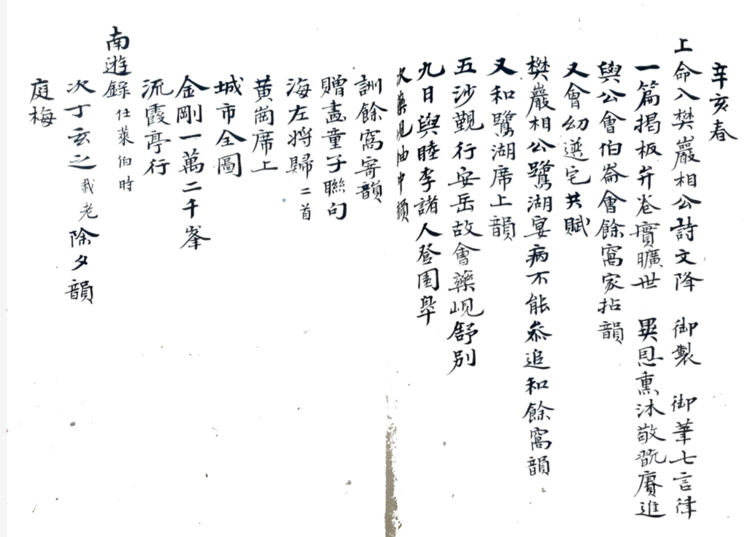 辛亥春
上命入樊巖相公詩文降 御製 御筆七言律
一篇揭板弁卷實曠世 異恩熏沐敬翫賡進
與公會伯崙會餘窩家拈韻
又會幼選宅共賦
樊巖相公鷺湖宴病不能叅追和餘窩韻
又和鷺湖席上韻
五沙觀行安岳故會藥峴舒別
九日與睦李諸人登圃皐
次藥峴岫中韻
訓餘窩寄韻
贈畵童子聯句
海左將歸 二首
黃崗席上
城市全圖
金剛一萬二千峯
流霞亭行
南遊錄 仕萊伯時
次丁玄之 我老 除夕韻
庭梅